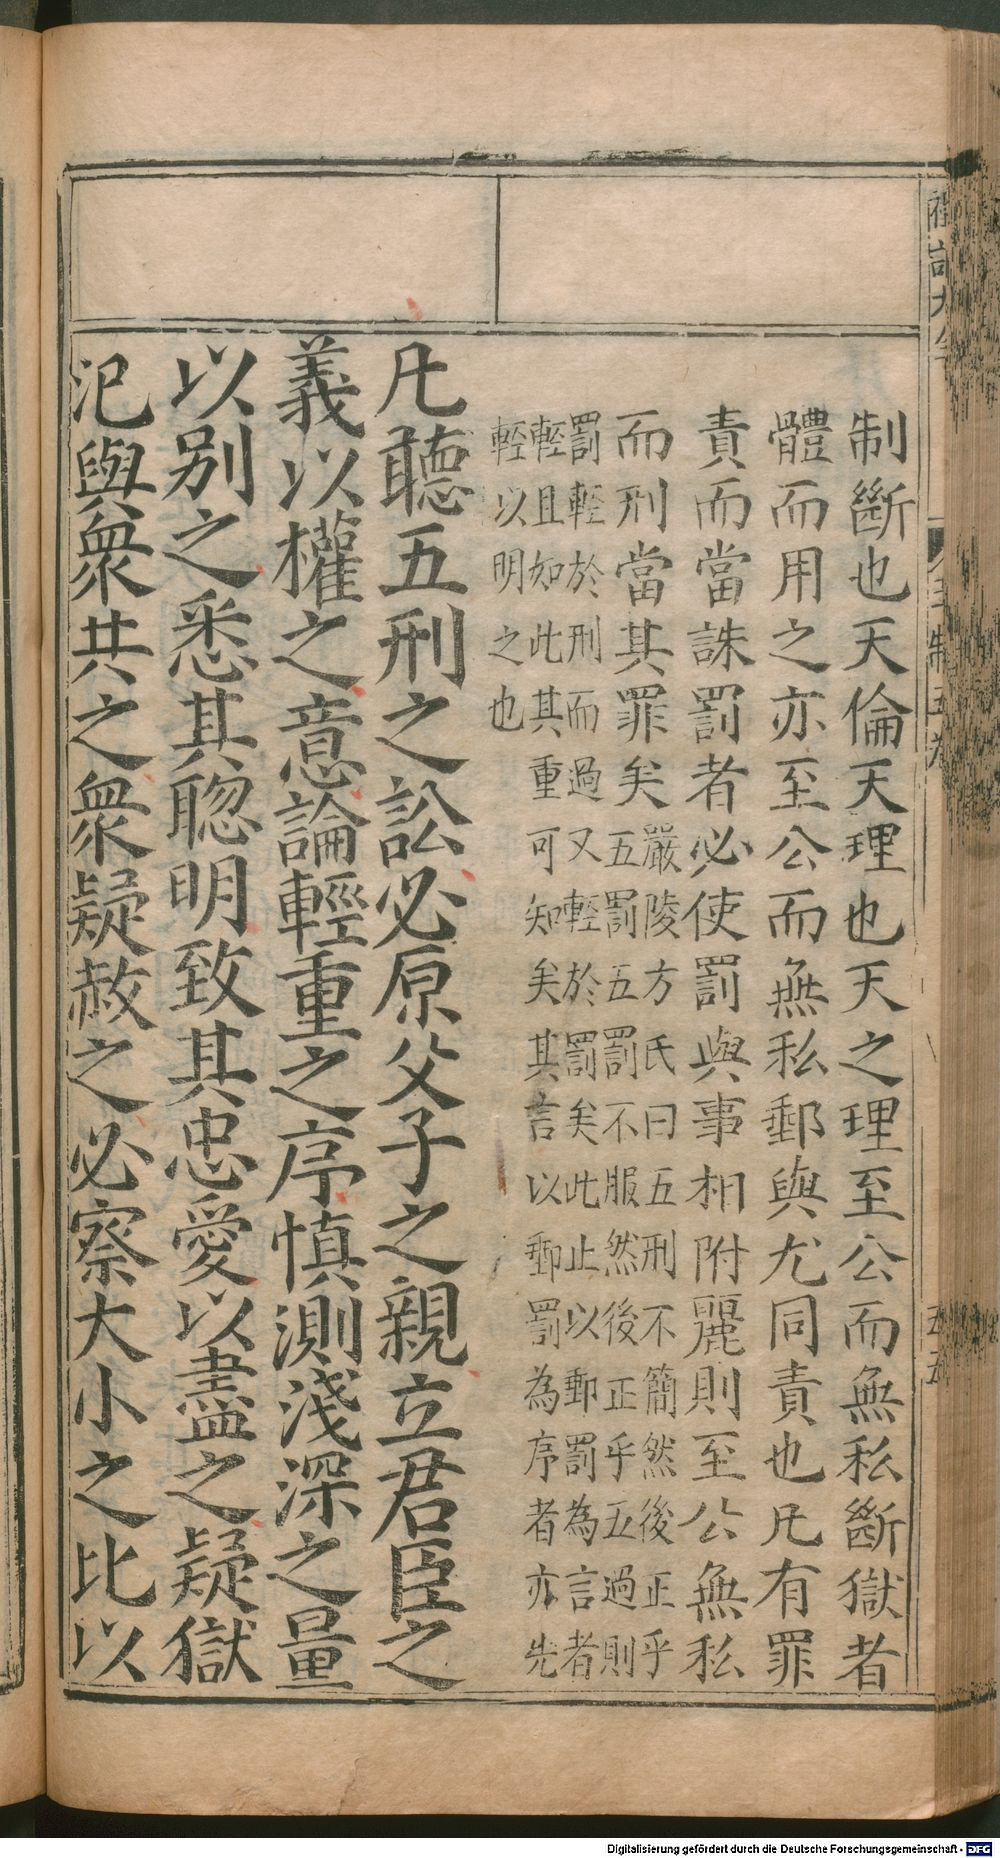 制斷也天倫天理也天之理至公而無私斷獄者
體而用之亦至公而無私郵與尤同責也凡有罪
責而當誅罰者必使罰與事相附麗則至公無私
而刑當其罪矣
嚴陵方氏曰五刑不簡然後正乎
五罰五罰不服然後正乎五過則
罰輕於刑而過又輕於罰矣此止以郵罰為言者
輕且如此其重可知矣其言以郵罰為序者亦先
輕以明之也
凡聽五刑之訟必原父子之親立君臣之
義以權之意論輕重之序慎測淺深之量
以別之悉其聰明致其忠愛以盡之疑獄
汜與衆共之衆疑赦之必察大小之比以
Digitalisierung gefördert durch die Deutsche Forschungsgemeinschaft - DFG